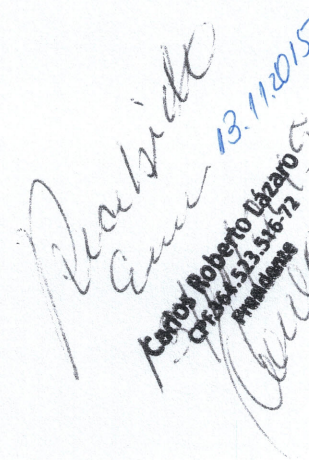 Recebido
em 13.11.2015
Carlos Roberto Lázaro
CPF.364.523.516-72
Presidente